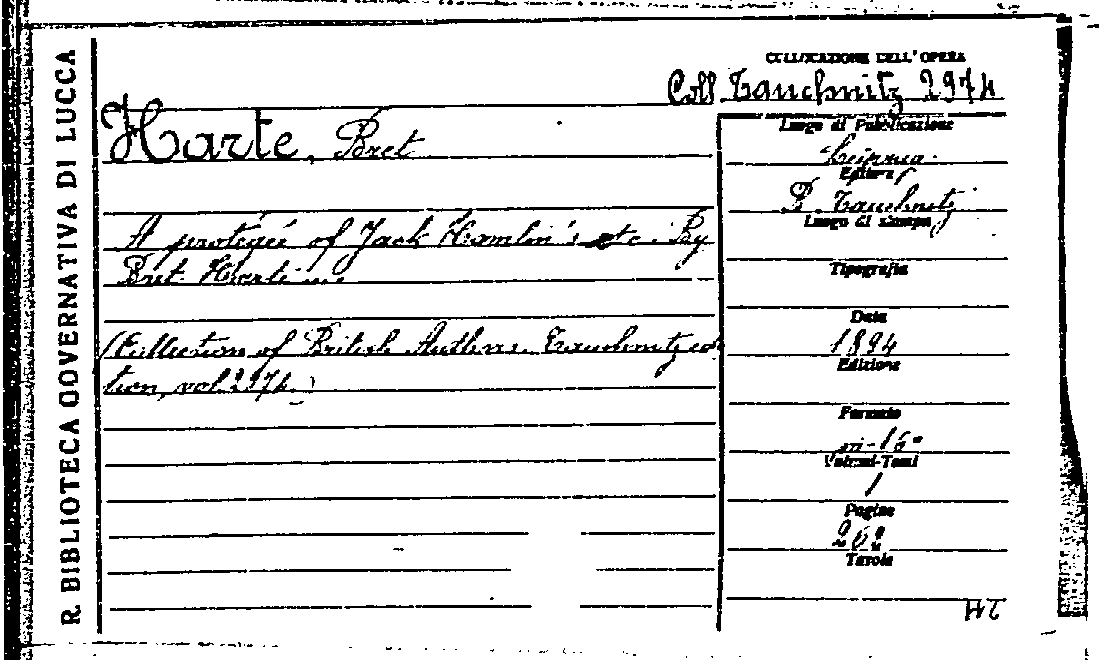 R. BIBLIOTECA GOVERNATIVA DI LUCCA
COLLOCAZIONE DELL'OPERA
Coll Tauchnitz 2974
Harte, Bret
A protégée of Jack Hamlin's etc. By
Bret Harte ...
(Collection of British Authors. Tauchnitz edi
tion, vol. 2974.)
Luogo di Pubblicazione
Editore
B. Tauchnitz
Luogo di stampa
Tipografia
Data
1894
Edizione
Formato
in-16°
Volumi-Tomi
1
Pagine
262
Tavole